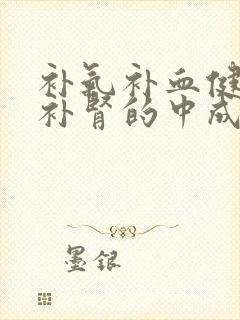 补气补血健
补肾的中成
墨银